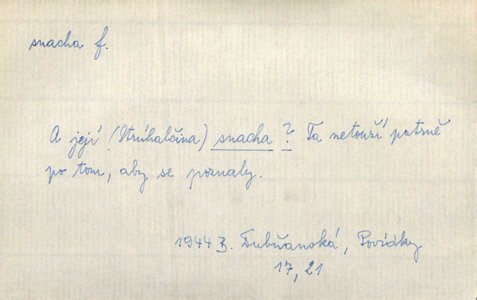 snacha f.
A její (Struhalčina) snacha? Ta netouží patrně
po tom, aby se poznaly.
1944 B. Dubňanská, Povídky
17, 21